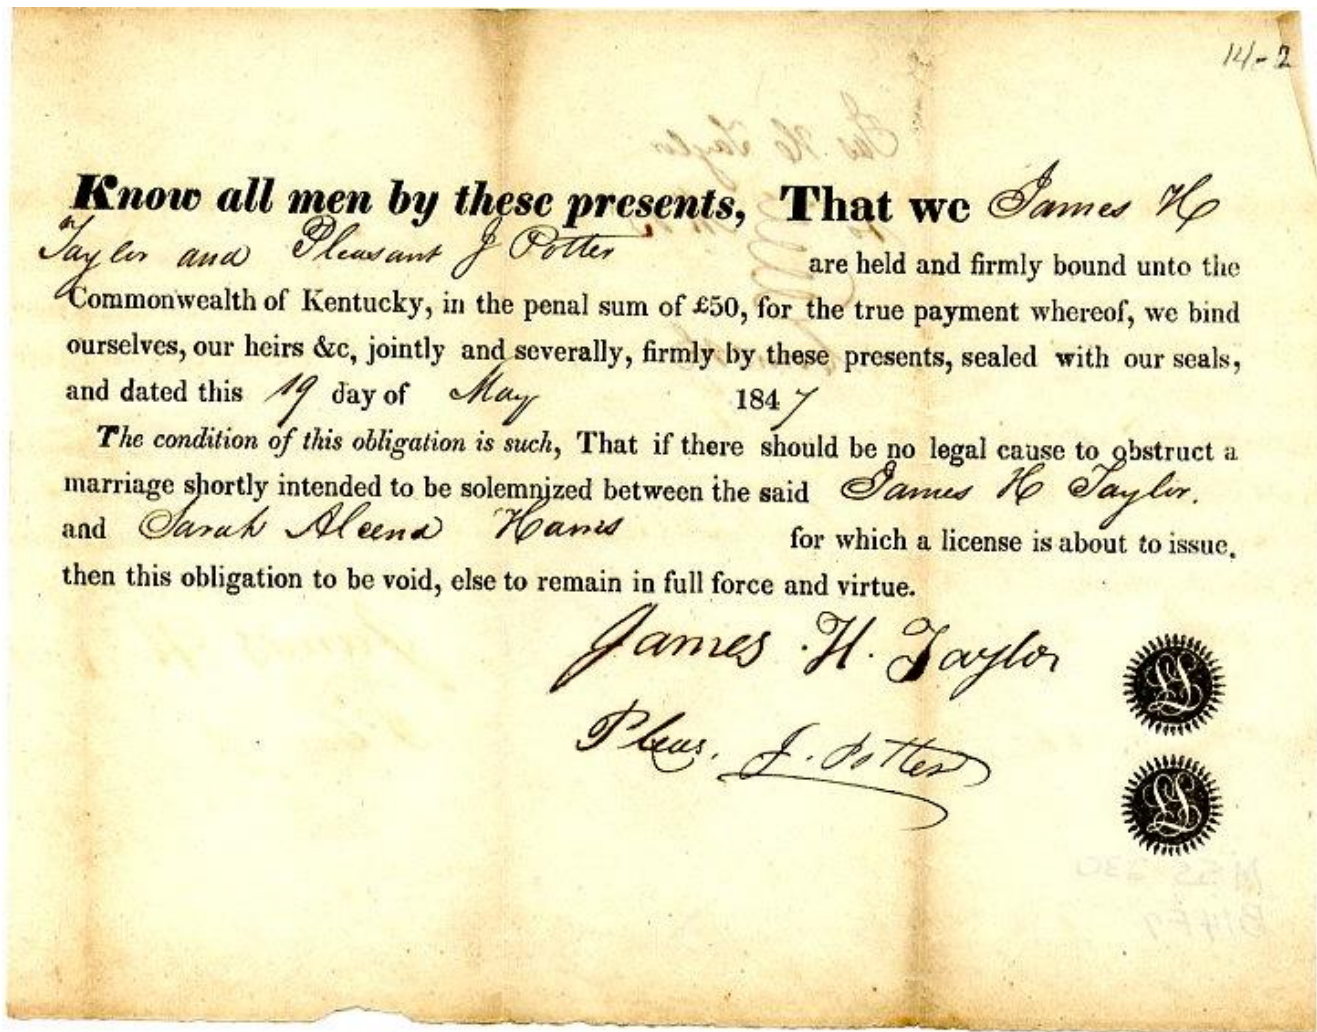 14-2
Know all men by these presents, That we James H
Taylor and Pleasant J Potter are held and firmly bound unto the
Commonwealth of Kentucky, in the penal sum of £50, for the true payment whereof, we bind
ourselves, our heirs &c, jointly and severally, firmly by these presents, sealed with our seals,
and dated this 19 day of May 1847
The condition of this obligation is such, That if there should be no legal cause to obstruct a
marriage shortly intended to be solemnized between the said James H Taylor.
and Sarah for which a license is about to issue,
then this obligation to be void, else to remain in full force and virtue.
James H. Taylor
Pleas. J. Potter